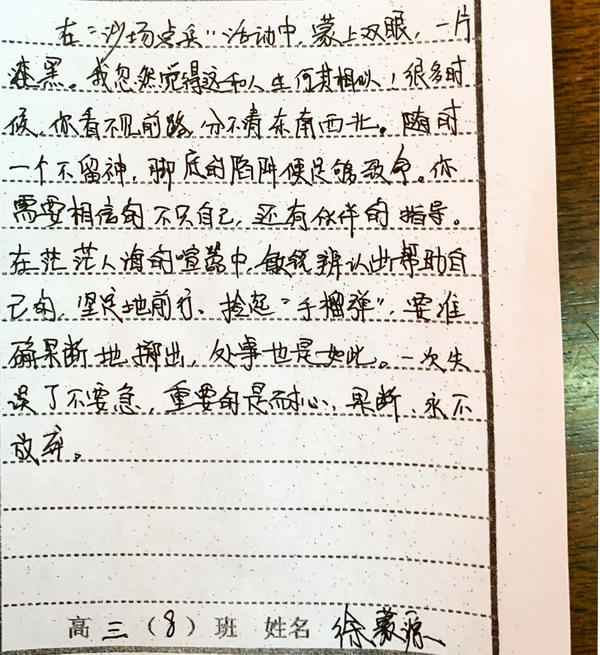 在“沙场点兵”活动中，蒙上双眼，一片
漆黑。我忽然觉得这和人生何其相似！很多时
候，你看不见前路，分不清东南西北。随时
一个不留神，脚底的陷阱便足够致命。你
需要相信的不只自己，还有伙伴的指导。
在茫茫人海的喧嚣中，敏锐辨认出帮助自
己的，坚定地前行。捡起“手榴弹”，要准
确果断地掷出，处事也是如此。一次失
误了不要急，重要的是耐心、果断、永不
放弃。
高三（8）班 姓名 徐蒙源